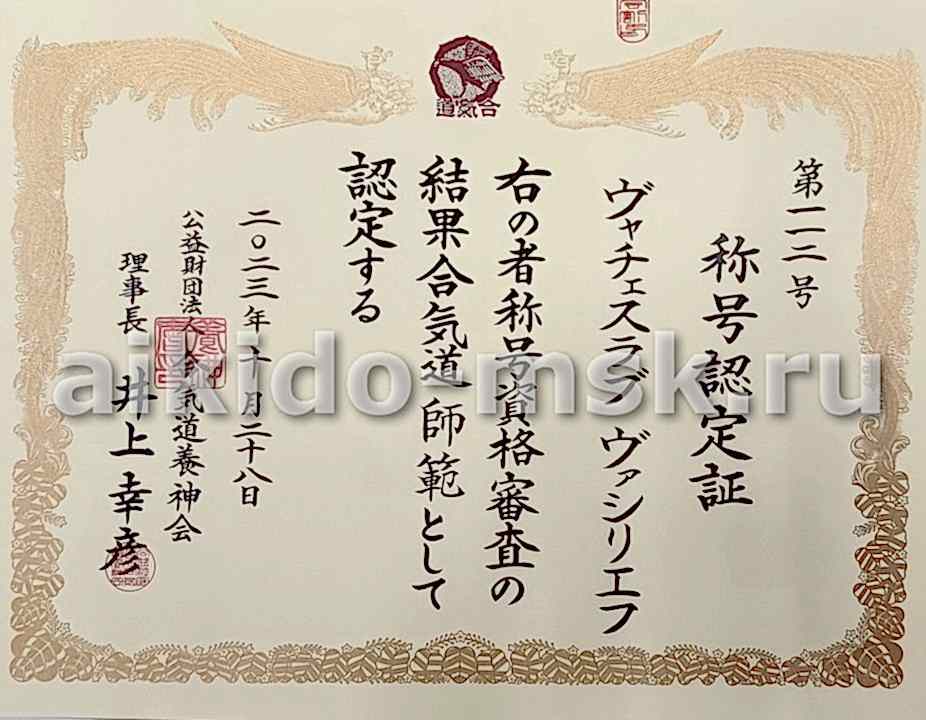 道氣合
第一一二号
称号認定証
ヴャチェスラブ ヴァシリエフ
右の者称号資格審査の
結果合気道師範として
認定する
二〇二三年十月二十八日
公益財団法人合気道養神会
理事長 井上幸彦
aikido-msk.ru